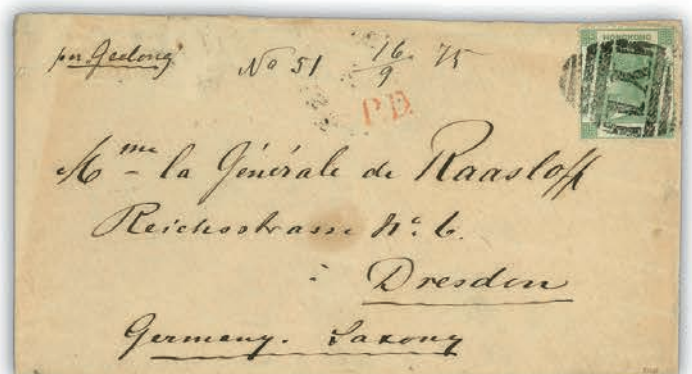 per Geelong
No 51 16/9 75
P.D.
HONG KONG
Mme la Générale de Raasloff
Reichsstrasse No. 6.
Dresden
Germany. Saxony